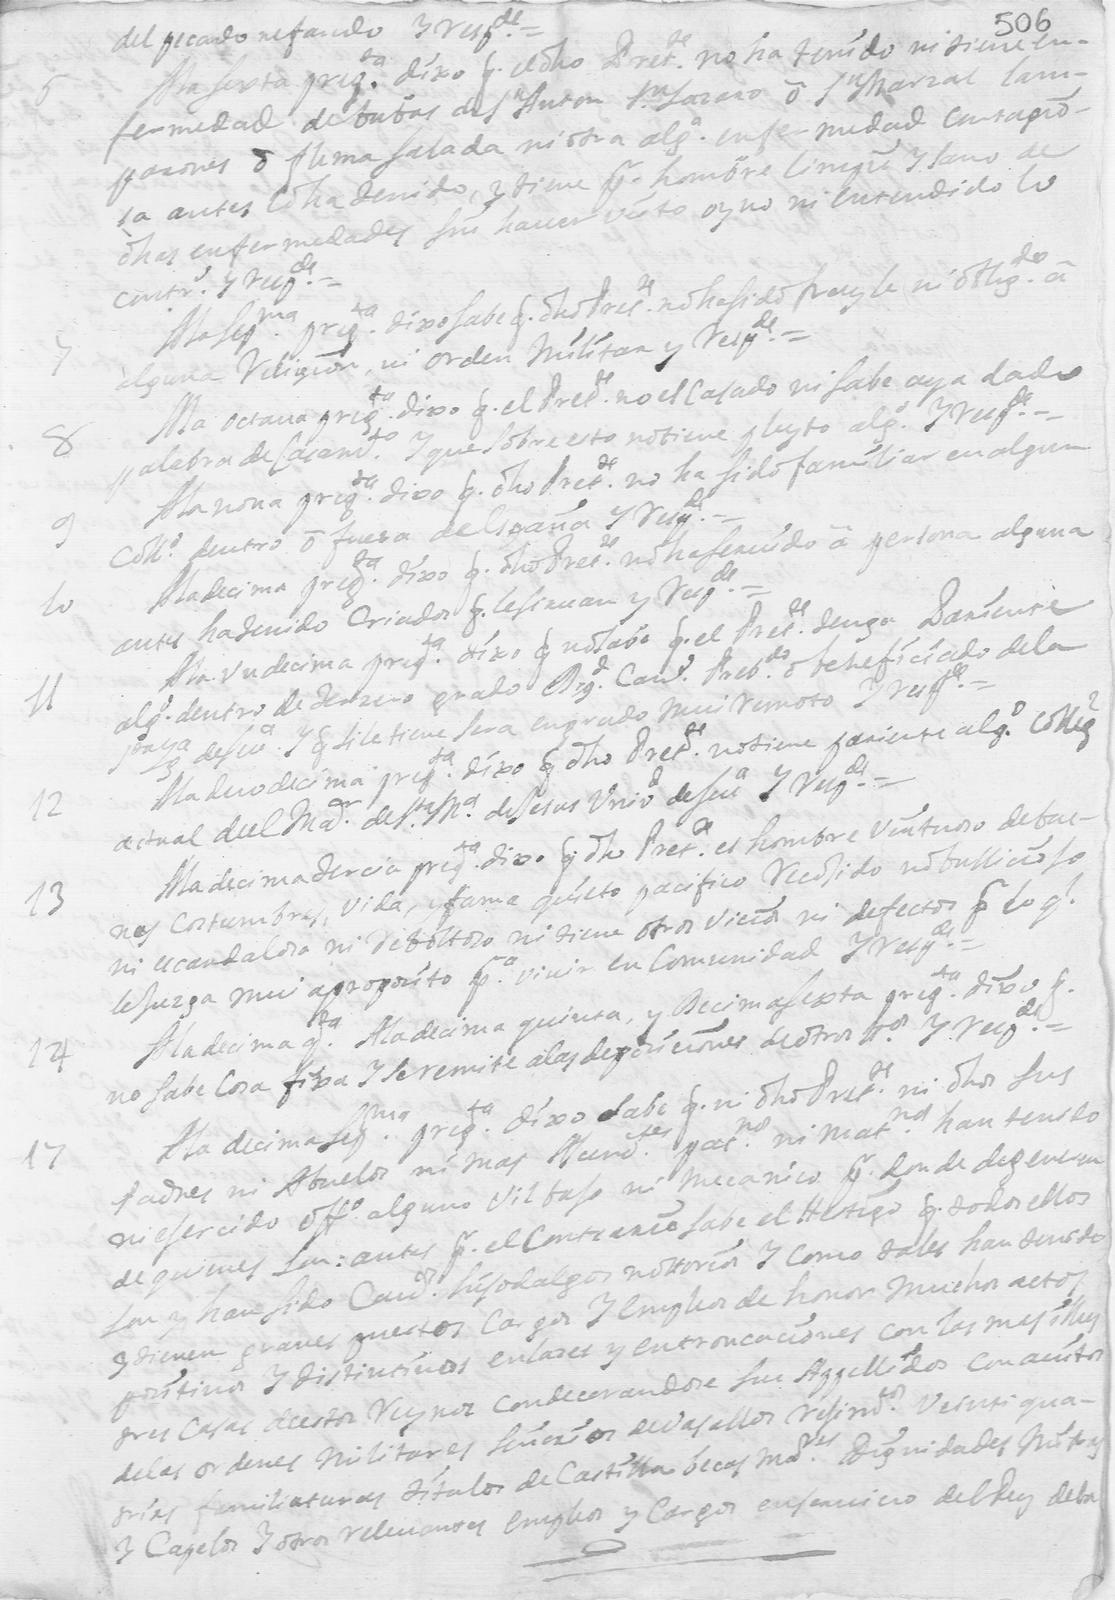 506
del pecado nefando y respde. =
6 A la sexta pregta. dixo q. el dho Prete. no ha tenido ni tiene en-
fermedad de bubas de Sn Anton Sn Lazaro ō Sn Marzal lam-
parones ō flema salada ni otra alga. enfermedad contagio-
sa antes lo ha tenido, y tiene pr. hombre limpio y sano de
dhas enfermedades sin haver visto oydo ni entendido lo
contro. y respde. =
7 A la sepma pregta. dixo sabe q. dho Prete. no ha sido frayle ni obligdo ā
alguna Religion, ni orden Militar y respde. =
8 A la octava pregta. dixo q. el Prete. no es Casado ni sabe aya dado
palabra de Casamto. y que sobre esto no tiene pleyto algo. y respde. =
9 A la nona pregta. dixo q. dho Prete. no ha sido familiar en algun
Collo. dentro ō fuera de España y respde. =
10 A la decima pregta. dixo q. dho Prete. no ha servido ā persona alguna
antes ha tenido Criados q. le sirvan y respde. =
11 A la undecima pregta. dixo q no sabe q. el Prete. tenga Pariente
algo. dentro de terzero grado Digd. Cano. Prebdo. o beneficiado de la
sta Yga de Seva. y q si le tiene sera en grado mui remoto y respde. =
12 A la duodecima pregta. dixo q dho Prete. no tiene pariente algo. Collegl
actual de el Mar. de Sta Ma. de Jesus Univd de Seva y respde. =
13 A la decima tercia pregta. dixo q dho Prete. es hombre virtuoso de bue-
nas costumbres, vida, y fama quieto pacifico recojido no bullicioso
ni escandaloso ni reboltoso ni tiene otros vicios ni defectos pr lo ql.
le juzga mui aproposito pa. vivir en Comunidad y respde. =
14 A la decima qta. A la decima quinta, y Decima sexta pregta. dixo q.
no sabe cosa fixa y se remite a las deposiciones de otros tos. y respde. =
17 A la decima sepma. pregta. dixo sabe q. ni dho Prete. ni dhos sus
Padres ni Abuelos ni mas Ascendtes. patnos. ni matnos han tenido
ni ejercido offo. alguno vil bajo ni mecanico pr. donde degeneren
de quienes son: antes pr. el contrario sabe el testigo q. todos ellos
son y han sido Cavos. hijosdalgos nottorios y como tales han tenido
y tienen graves puestos Cargos y empleos de honor muchos actos
positivos y distintivos enlaces y entroncaciones con las mas illus
tres Casas de estos Reynos condecorandose sus Appellidos con avitos
de las ordenes Militares señorios de vasallos rejimtos. veinti qua-
trias familiaturas titulos de Castilla becas mares. Dignidades Mitras
y Capelos y otros relevantes empleos y Cargos en servicio del Rey de la